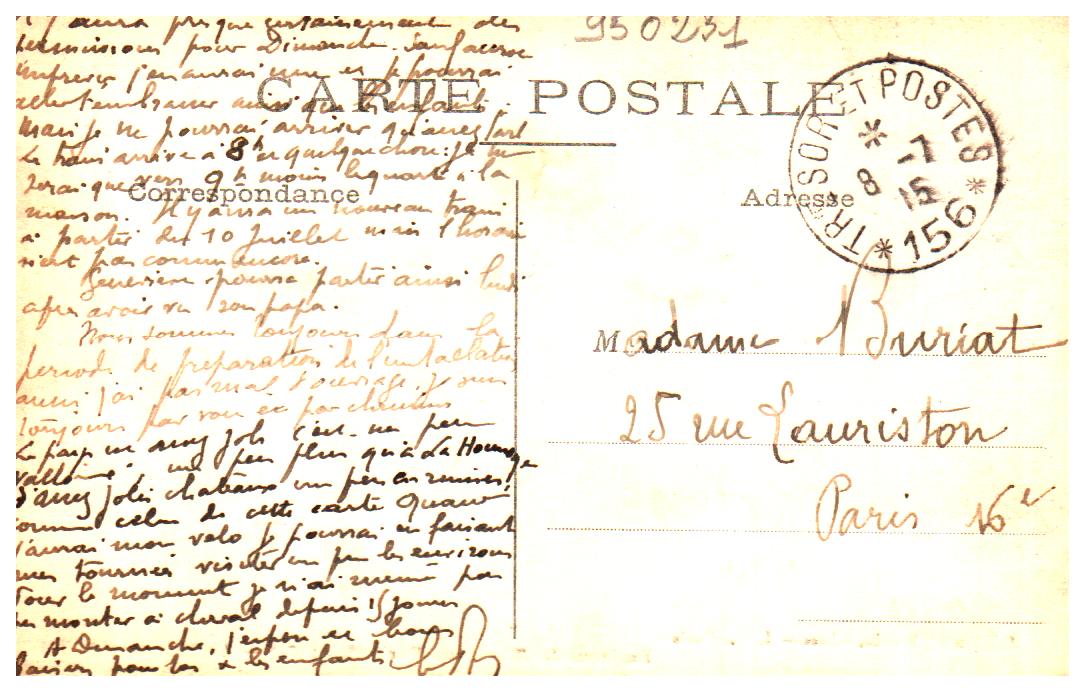 950231
CARTE POSTALE
Correspondance
Adresse
TRESOR ET POSTES
* 7
8 - 15
* 156 *
y aura presque certainement des
permissions pour Dimanche. Sauf
imprévu j'en aurai une et je pourrai
aller t'embrasser ainsi que les enfants.
Mais je ne pourrai arriver qu'assez tard
Le train arrive à 8h et quelque chose: je ne
serai que vers 9h moins le quart à la
maison. Il y aura un nouveau train
à partir du 10 Juillet mais l'horaire
n'est pas connu encore.
Geneviève pourra partir ainsi lundi
après avoir vu son papa.
Nous sommes toujours dans la
période de préparation de
aussi j'ai pas mal d'ouvrage. Je suis
toujours par vau et par chemins
Le pays est assez joli c'est un peu
vallonné un peu plus qu'à La
d'assez jolis chateaux un peu en ruines,
comme celui de cette carte Quand
j'aurai mon velo je pourrai en faisant
mes tournées visiter un peu les environs
Pour le moment je n'ai même pas
pu monter à cheval depuis 15 jours
A Dimanche, j'espère et bons
baisers pour toi & les enfants
Madame Buriat
25 rue Lauriston
Paris 16e